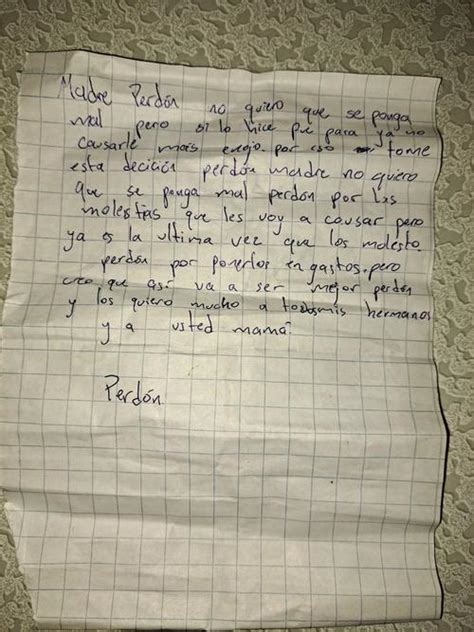 Madre Perdón no quiero que se ponga
mal pero si lo hice fue para ya no
causarle mas enojo por eso tome
esta decición perdón madre no quiero
que se ponga mal perdón por las
molestias que les voy a causar pero
ya es la ultima vez que los molesto.
perdón por ponerlos en gastos. pero
creo que así va a ser mejor perdón
y los quiero mucho a todos mis hermanos
y a usted mamá.
Perdón